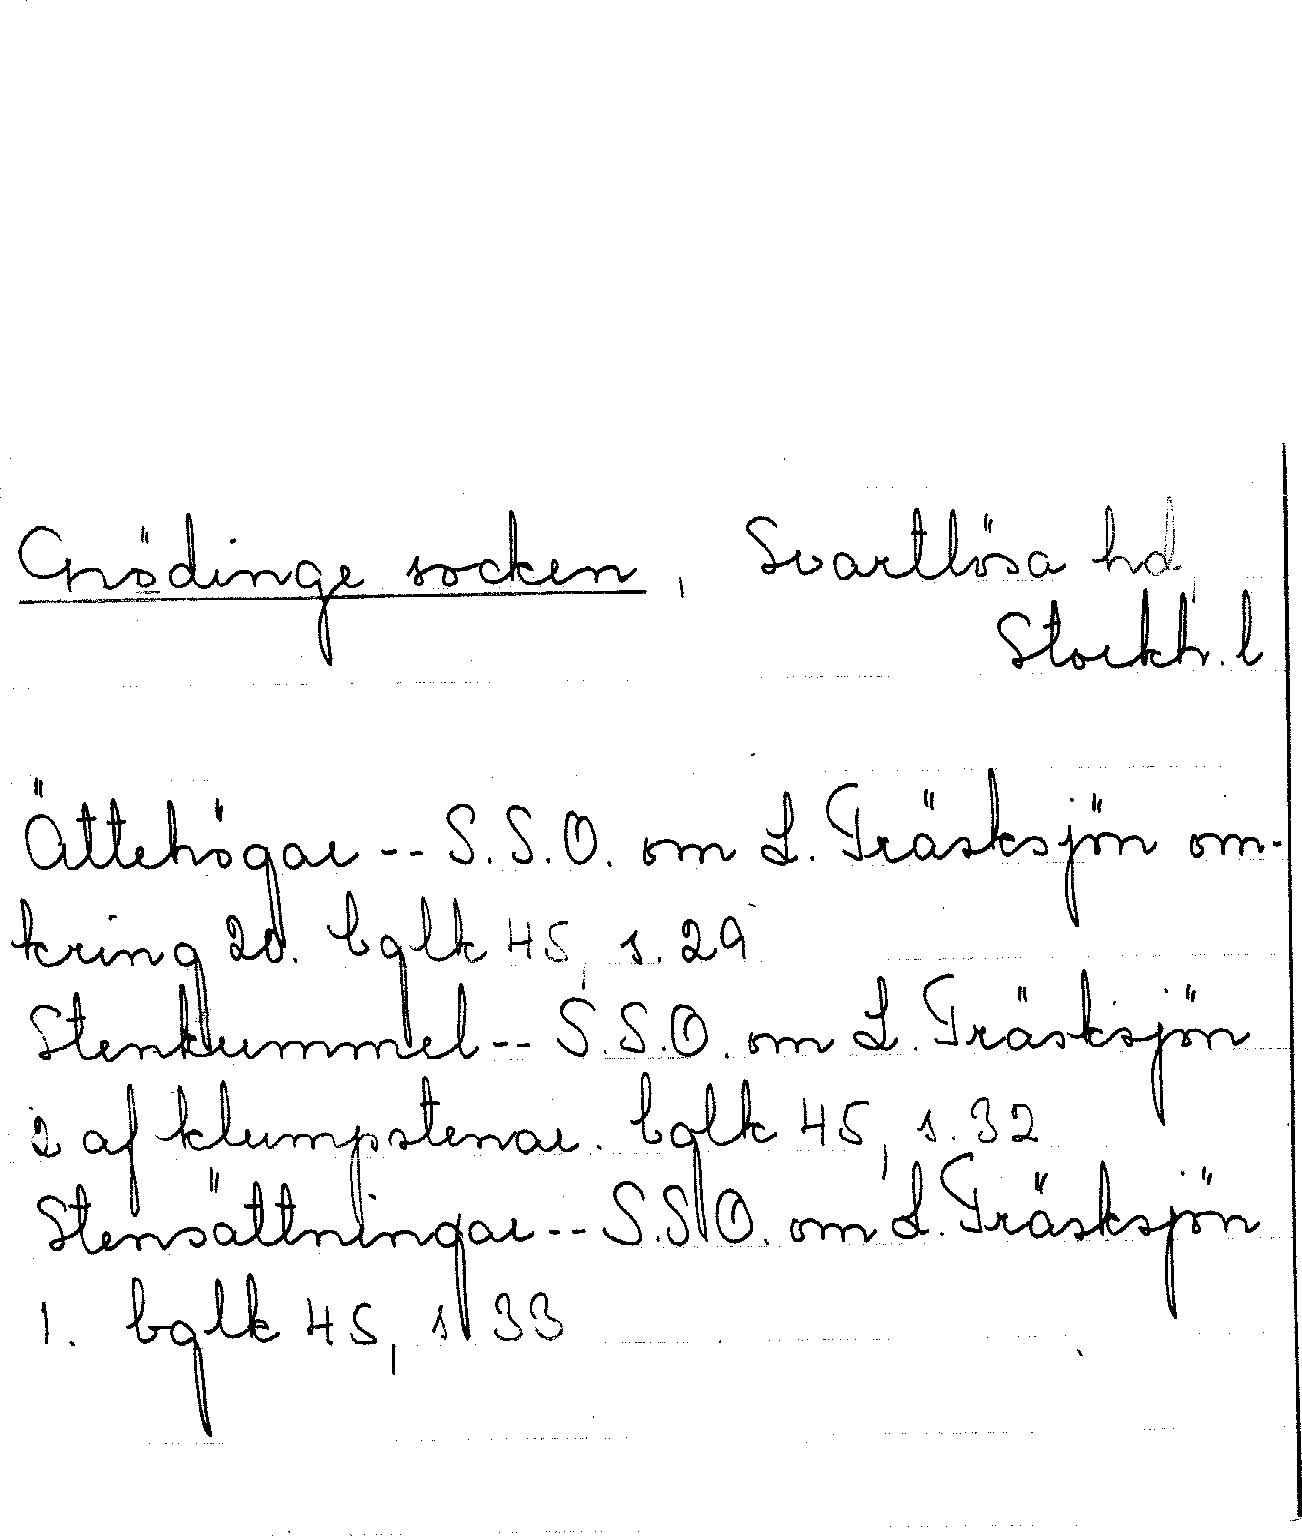 Grödinge socken, Svartlösa hd,
Stockh. l
Ättehögar -- S.S.O. om L. Träsksjön om-
kring 20. bglk 45, s. 29
Stenkummel -- S.S.O. om L. Träsksjön
2 af klumpstenar. bglk 45, s. 32
Stensättningar -- S.S.O. om L. Träsksjön
1. bglk 45, s 33